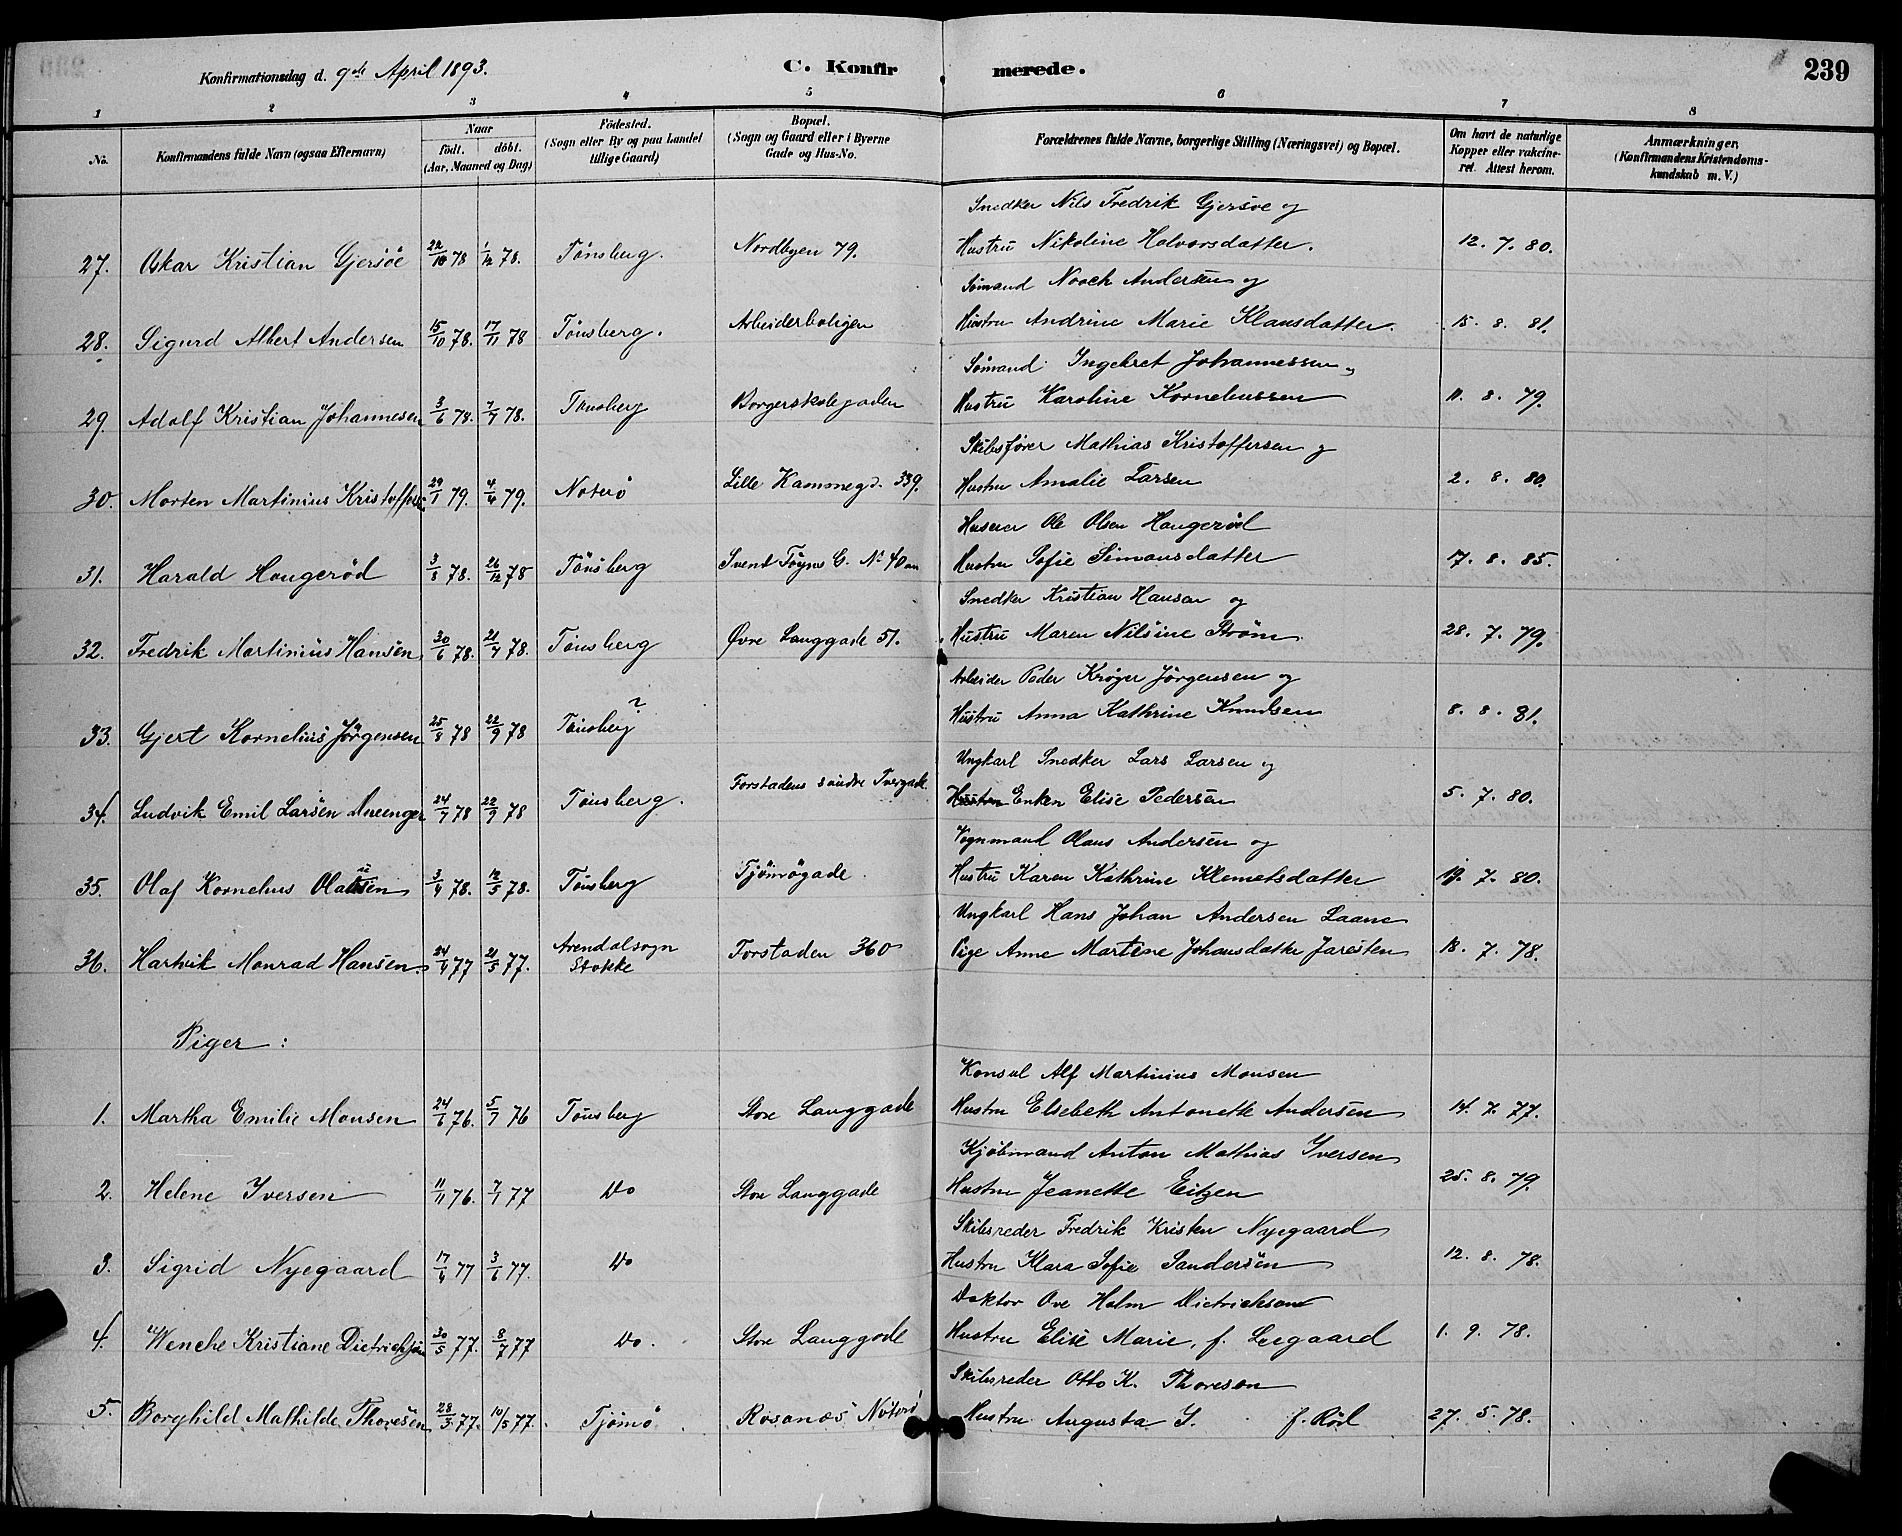 Konfirmationsdag d. 9de April 1893. C. Konfirmerede. 239
1 2 3 4 5 6 7 8
No. Konfirmandens fulde Navn (ogsaa Efternavn) Naar født. døbt. (Aar, Maaned og Dag) Fødested. (Sogn eller By og paa Landet tillige Gaard) Bopæl. (Sogn og Gaard eller i Byerne Gade og Hus-No. Forældrenes fulde Navne, borgerlige Stilling (Næringsvei) og Bopæl. Om havt de naturlige Kopper eller vakcineret. Attest herom. Anmærkninger, (Konfirmandens Kristendomskundskab m. V.)
Snedker Nils Fredrik Gjersøe og
27. Oskar Kristian Gjersöe 22/10 78 1/12 78. Tönsberg. Nordbyen 79. Hustru Nikoline Halvorsdatter. 12. 7. 80.
Sömand Noach Andersen og
28. Sigurd Albert Andersen 15/10 78. 17/11 78 Tönsberg. Arbeiderboligen Hustru Andrine Marie Klausdatter. 15. 8. 81.
Sömand Ingebret Johannessen
29. Adolf Kristian Johannesen 3/6 78. 7/7 78. Tönsberg Borgerskolegaden Hustru Karoline Korneliussen 11. 8. 79.
Skibsfører Mathias Kristoffersen og
30. Morten Martinius Kristoffers. 29/1 79. 4/4 79. Noterö Lille Kammegd. 339. Hustru Amalie Larsen 2. 8. 80.
Huseier Ole Olsen Haugeröd
31. Harald Haugeröd 3/8 78. 26/12 78 Tönsberg Svend Föyns G. No 40 Hustru Sofie Simonsdatter 17. 8. 85.
Snedker Kristian Hansen og
32. Fredrik Martinius Hansen 30/6 78. 21/7 78. Tönsberg Øvre Langgade 51. Hustru Maren Nilsine Ström 28. 7. 79.
Arbeider Peder Kröger Jörgensen og
33. Gjert Kornelius Jörgensen 25/8 78 22/9 78 Tönsberg ? Hustru Anna Kathrine Knudsen 8. 8. 81.
Ungkarl Snedker Lars Larsen og
34. Ludvik Emil Larsen 24/7 78 22/9 78 Tönsberg. Forstadens søndre Tvergade Enken Elise Pedersen 5. 7. 80.
Vognmand Olaus Andersen og
35. Olaf Kornelius Olausen 3/4 78. 12/5 78. Tönsberg Tjömögade. Hustru Karen Kathrine Klemetsdatter 19. 7. 80.
Ungkarl Hans Johan Andersen Laane
36. Hartvik Monrad Hansen 24/4 77 21/5 77. Arendalsogn Stokke Forstaden 360 Pige Anne Martine Johansdatter Jaresten 18. 7. 78.
Piger:
Konsul Alf Martinius Monsen
1. Martha Emilie Monsen 24/6 76. 5/7 76 Tönsberg Store Langgade Hustru Elsebeth Antonette Andersen 14. 7. 77.
Kjöbmand Anton Mathias Iversen
2. Helene Iversen 11/11 76. 7/1 77 Do Store Langgade Hustru Jeanette Eitzen 25. 8. 79.
Skibsreder Fredrik Kristen Nyegaard
3. Sigrid Nyegaard 17/4 77 3/6 77. Do Hustru Klara Sofie Sandersen 12. 8. 78.
Doktor Ove Holm Dietrichson
4. Wenche Kristiane Dietrichson 30/5 77. 8/7 77 Do. Store Langgade Hustru Elise Marie, f. Leegaard 1. 9. 78.
Skibsreder Otto K. Thoresen
5. Borghild Mathilde Thoresen 28/3 77. 10/5 77. Tjömö Rosanæs Nöterö Hustru Augusta S. f. Röd 27. 5. 78.